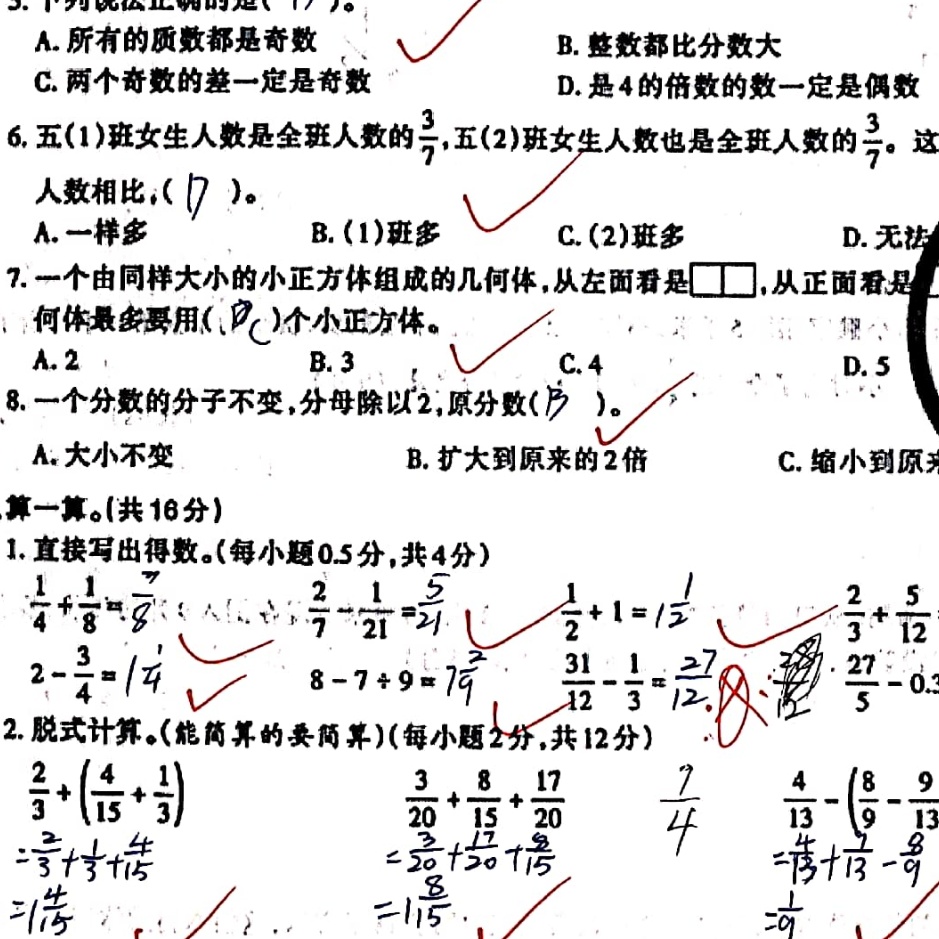 5. 下列说法正确的是( D )。
A. 所有的质数都是奇数 B. 整数都比分数大
C. 两个奇数的差一定是奇数 D. 是4的倍数的数一定是偶数
6. 五(1)班女生人数是全班人数的3/7,五(2)班女生人数也是全班人数的3/7。这
人数相比,( D )。
A. 一样多 B. (1)班多 C. (2)班多 D. 无法
7. 一个由同样大小的小正方体组成的几何体,从左面看是 ,从正面看是
何体最多要用( C )个小正方体。
A. 2 B. 3 C. 4 D. 5
8. 一个分数的分子不变,分母除以2,原分数( B )。
A. 大小不变 B. 扩大到原来的2倍 C. 缩小到原来
算一算。(共16分)
1. 直接写出得数。(每小题0.5分,共4分)
1/4 + 1/8 = 3/8 2/7 - 1/21 = 5/21 1/2 + 1 = 1 1/2 2/3 + 5/12
2 - 3/4 = 1 1/4 8 - 7 ÷ 9 = 7 2/9 31/12 - 1/3 = 27/12 27/5 - 0.3
2. 脱式计算。(能简算的要简算)(每小题2分,共12分)
2/3 + (4/15 + 1/3) 3/20 + 8/15 + 17/20 9/4 4/13 - (8/9 - 9/13
= 2/3 + 1/3 + 4/15 = 3/20 + 17/20 + 8/15 = 4/13 + 9/13 - 8/9
= 1 4/15 = 1 8/15 = 1/9